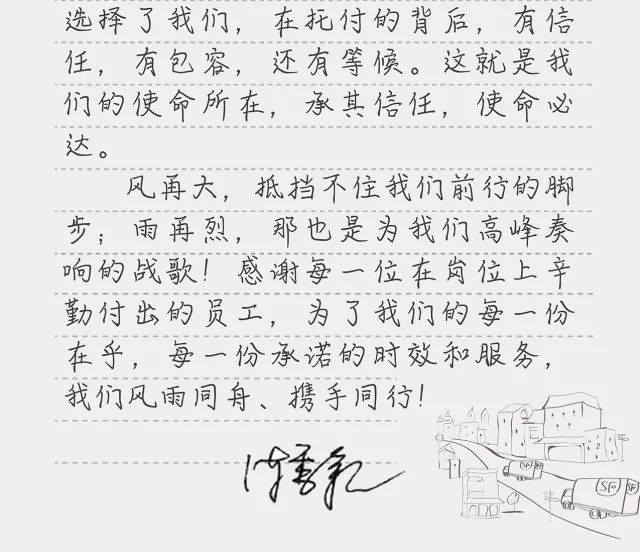 选择了我们，在托付的背后，有信
任，有包容，还有等候。这就是我
们的使命所在，承其信任，使命必
达。
风再大，抵挡不住我们前行的脚
步；雨再烈，那也是为我们高峰奏
响的战歌！感谢每一位在岗位上辛
勤付出的员工，为了我们的每一份
在乎，每一份承诺的时效和服务，
我们风雨同舟、携手同行！
SF
SF